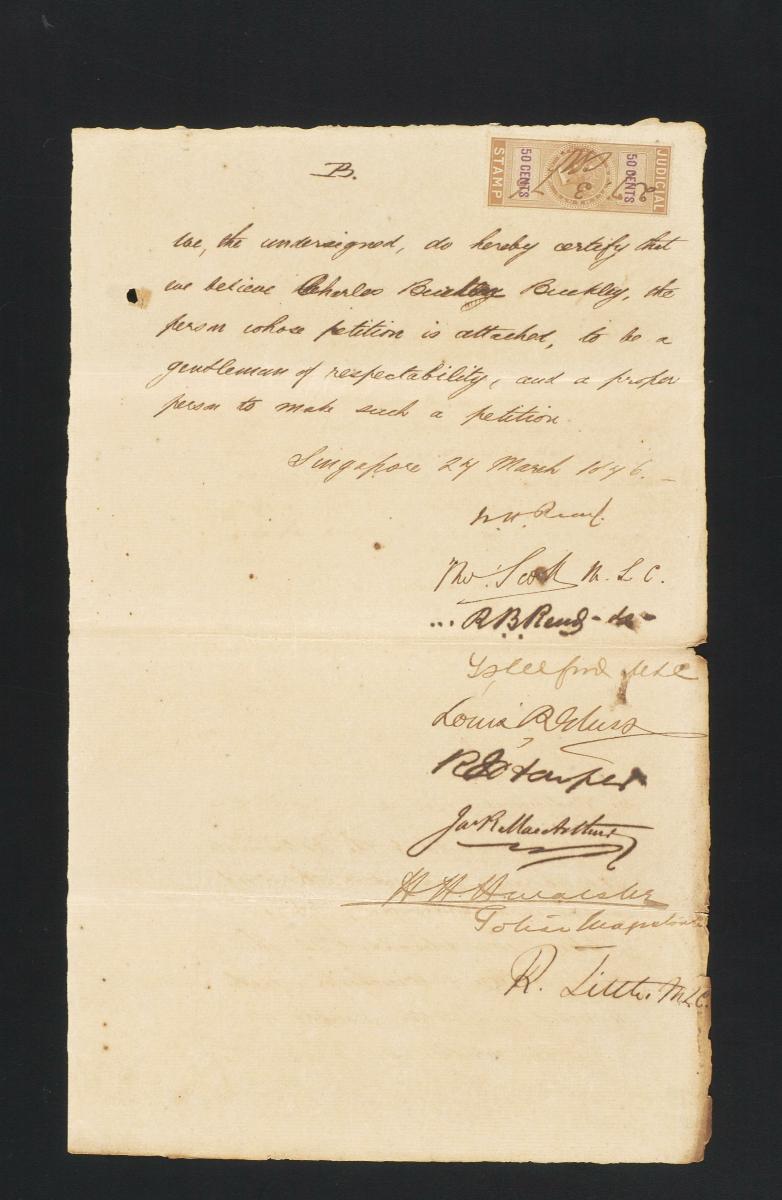 B.
JUDICIAL
50 CENTS
27
3
50 CENTS
STAMP
We, the undersigned, do hereby certify that
we believe Charles Burton Buckley, the
person whose petition is attached, to be a
gentleman of respectability, and a proper
person to make such a petition
Singapore 27 March 1876.
W. H. Read.
Tho^s. Scott M. L. C.
R B Read - do -
MLC
Louis R Glass
R W Harper
Ja^s R MacArthur
H. H.
Police Magistrate
R. Little. MLC.